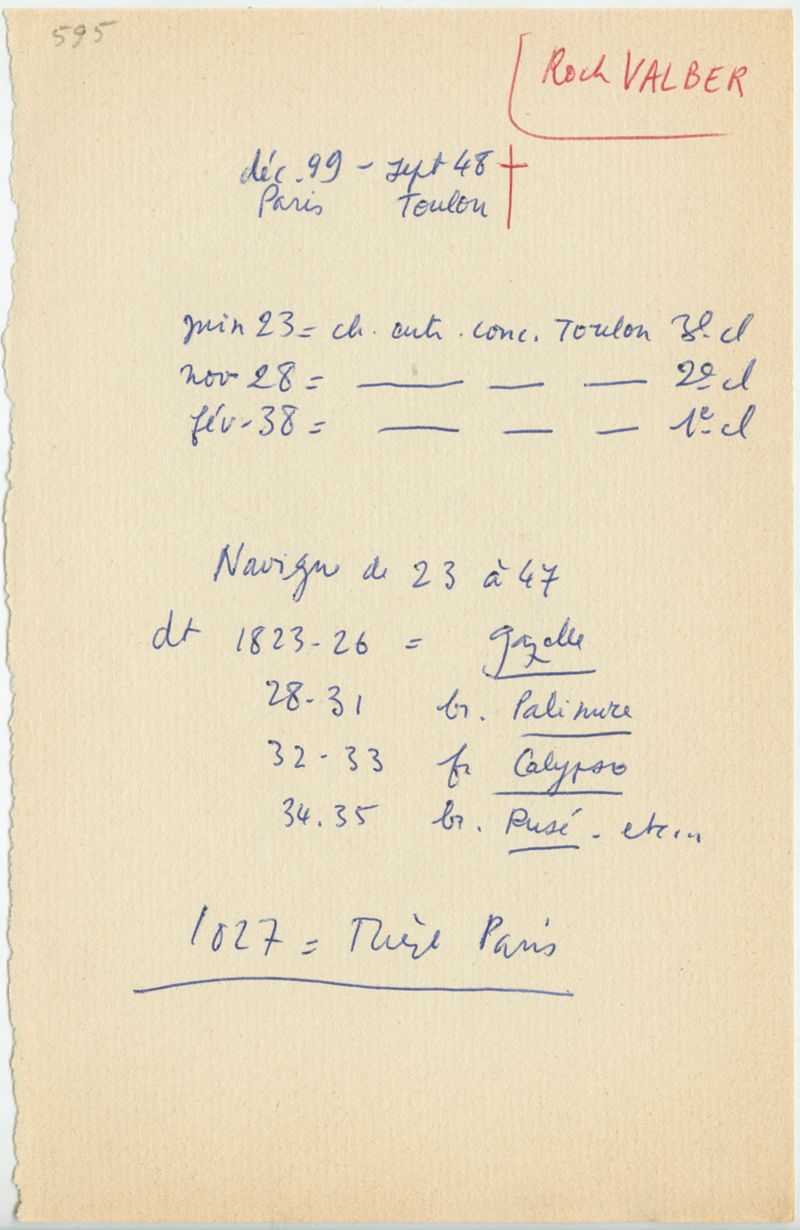 595
Roch VALBER
déc. 99 - sept 48 †
Paris Toulon
juin 23 = ch. auti. conc. Toulon 3e cl
nov 28 = — — — 2e cl
fév. 38 = — — — 1e cl
Navigue de 23 à 47
dt 1823-26 = Gazelle
28-31 br. Palinure
32-33 fr Calypso
34.35 br. Rusé. etc...
1827 = Thèse Paris